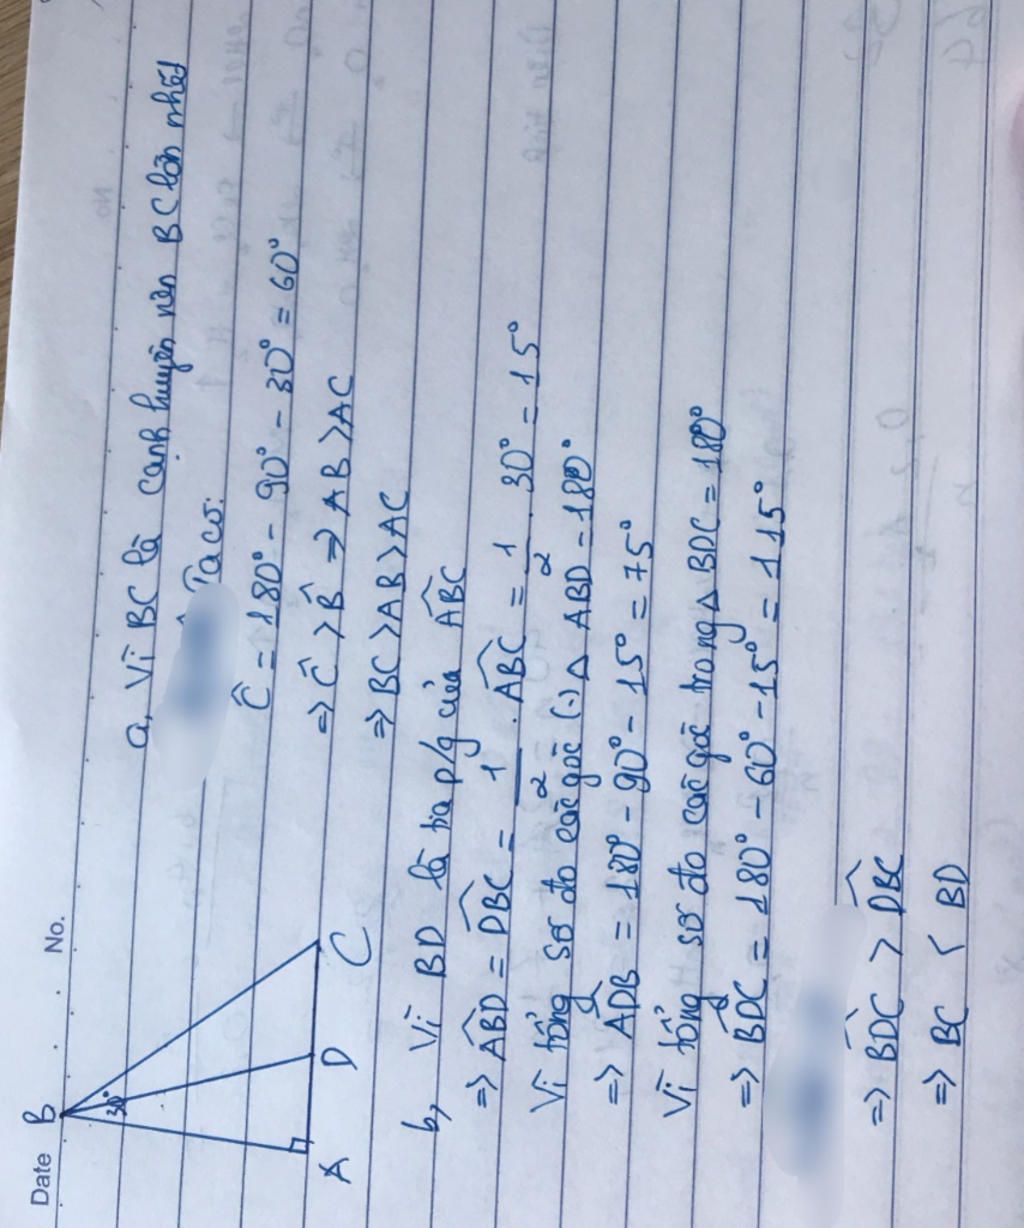 Date No.
B
30°
A D C
a, Vì BC là cạnh huyền nên BC lớn nhất
Ta có:
Ĉ = 180° - 90° - 30° = 60°
=> Ĉ > B̂ => AB > AC
=> BC > AB > AC
b, Vì BD là tia p/g của ABC
=> ABD = DBC = 1/2 . ABC = 1/2 . 30° = 15°
Vì tổng số đo các góc (.) △ ABD = 180°
=> ADB = 180° - 90° - 15° = 75°
Vì tổng số đo các góc trong △ BDC = 180°
=> BDC = 180° - 60° - 15° = 115°
=> BDC > DBC
=> BC < BD